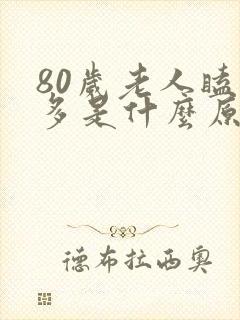 80歲老人瞌
多是什麼原
德布拉西奧